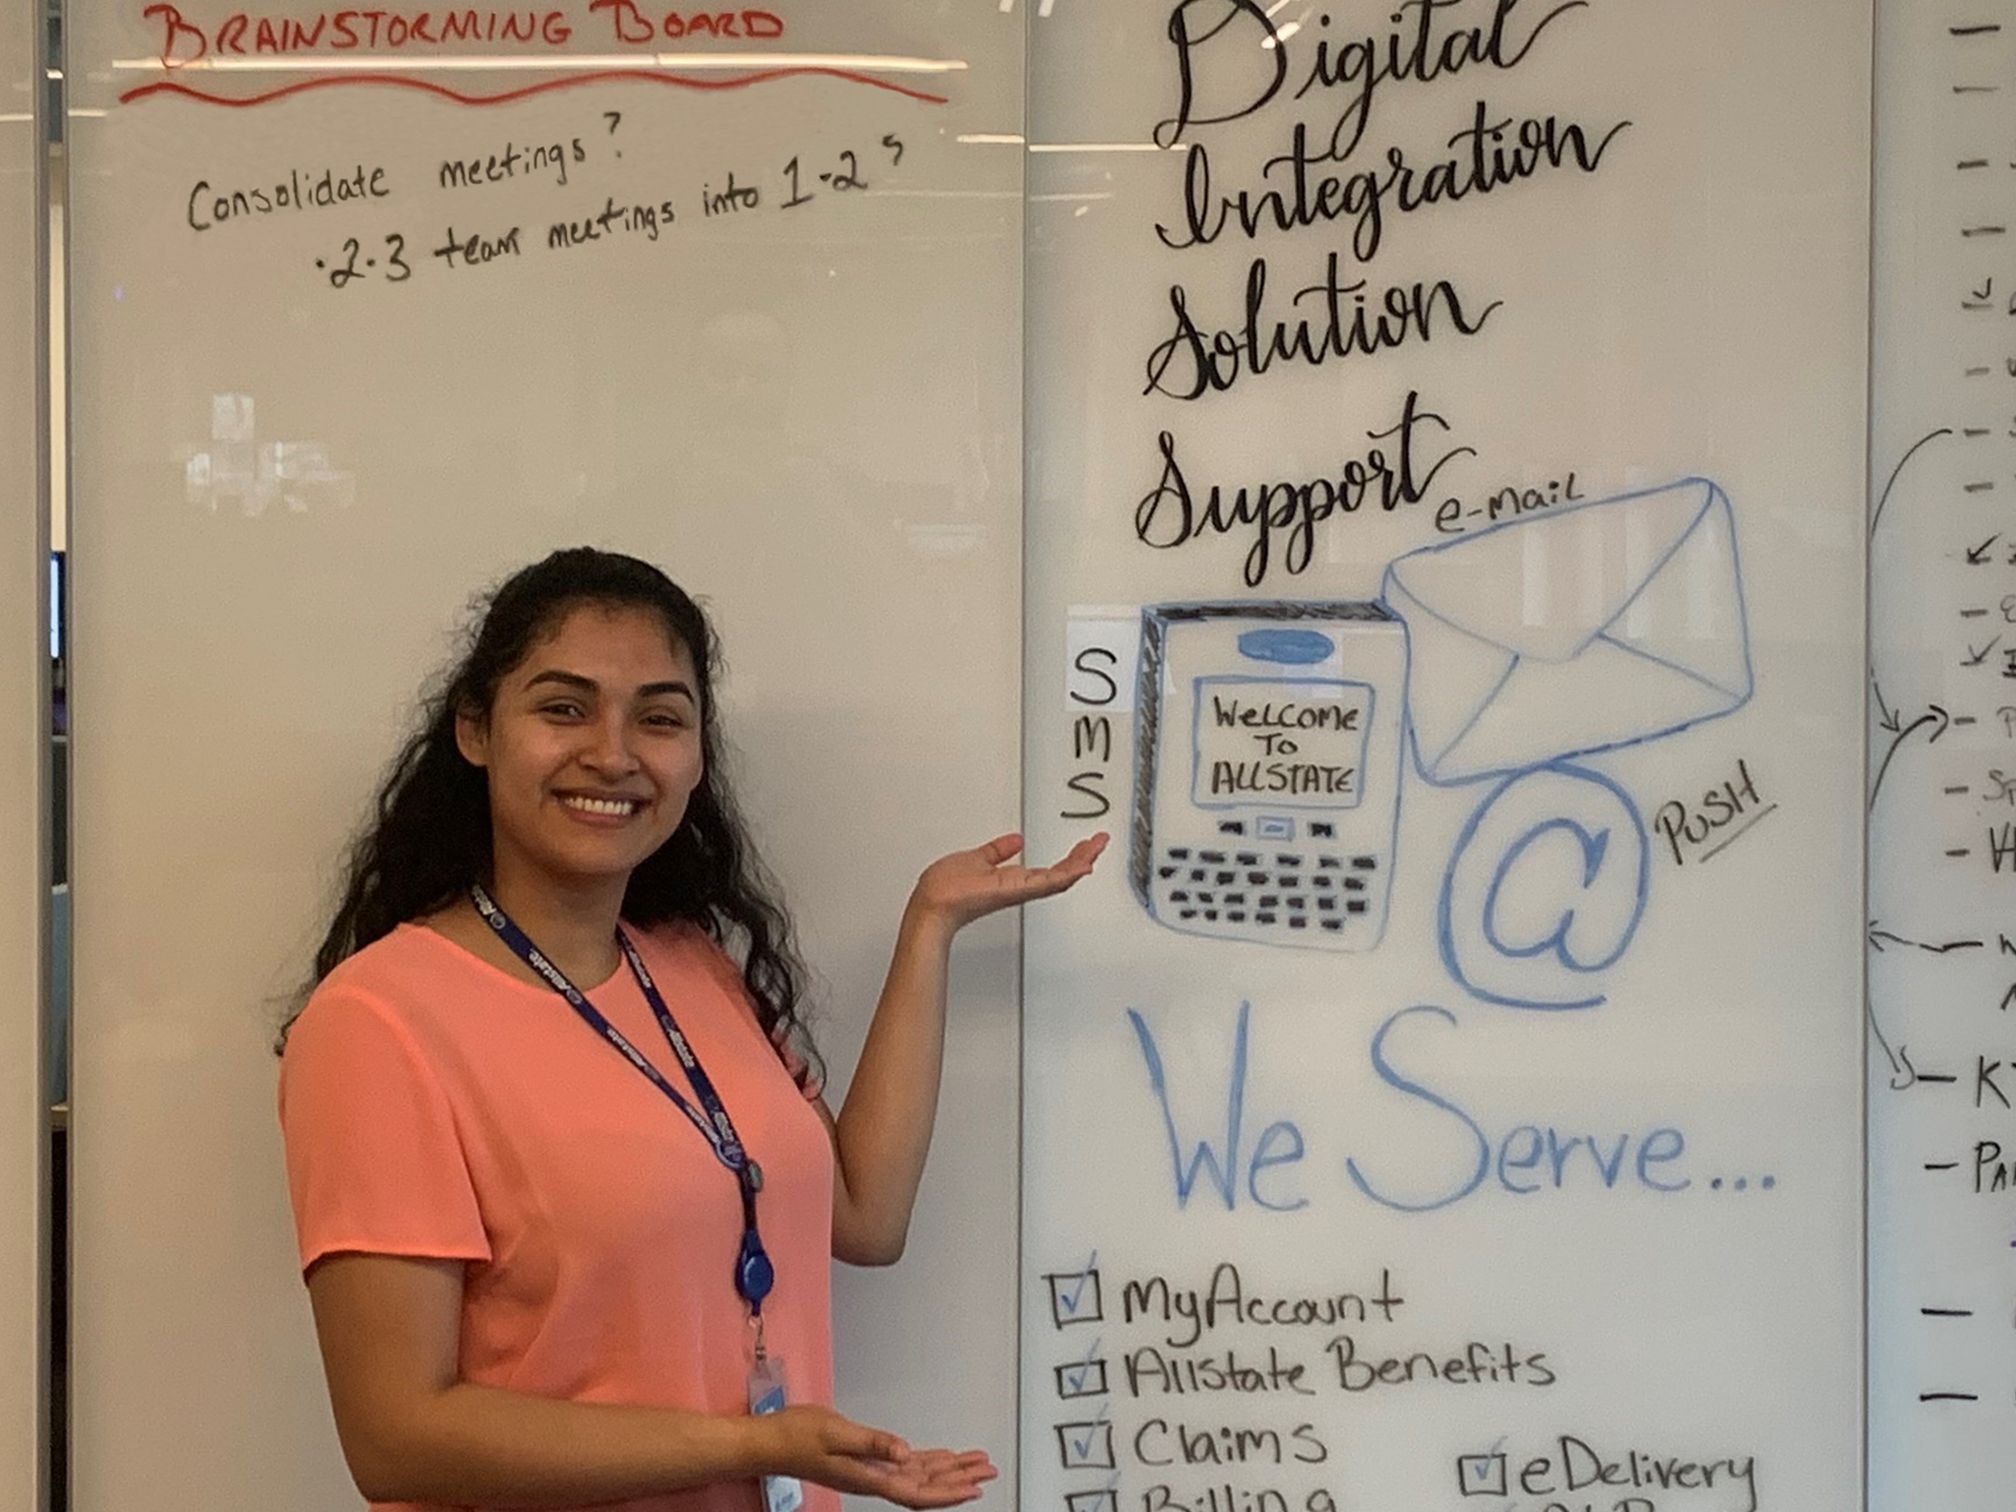 BRAINSTORMING BOARD
Consolidate meetings?
·2-3 team meetings into 1-2s
Digital
Integration
Solution
Support
e-mail
SMS
WELCOME
TO
ALLSTATE
PUSH
@
We Serve...
MyAccount
Allstate Benefits
Claims
eDelivery
Billing
Allstate